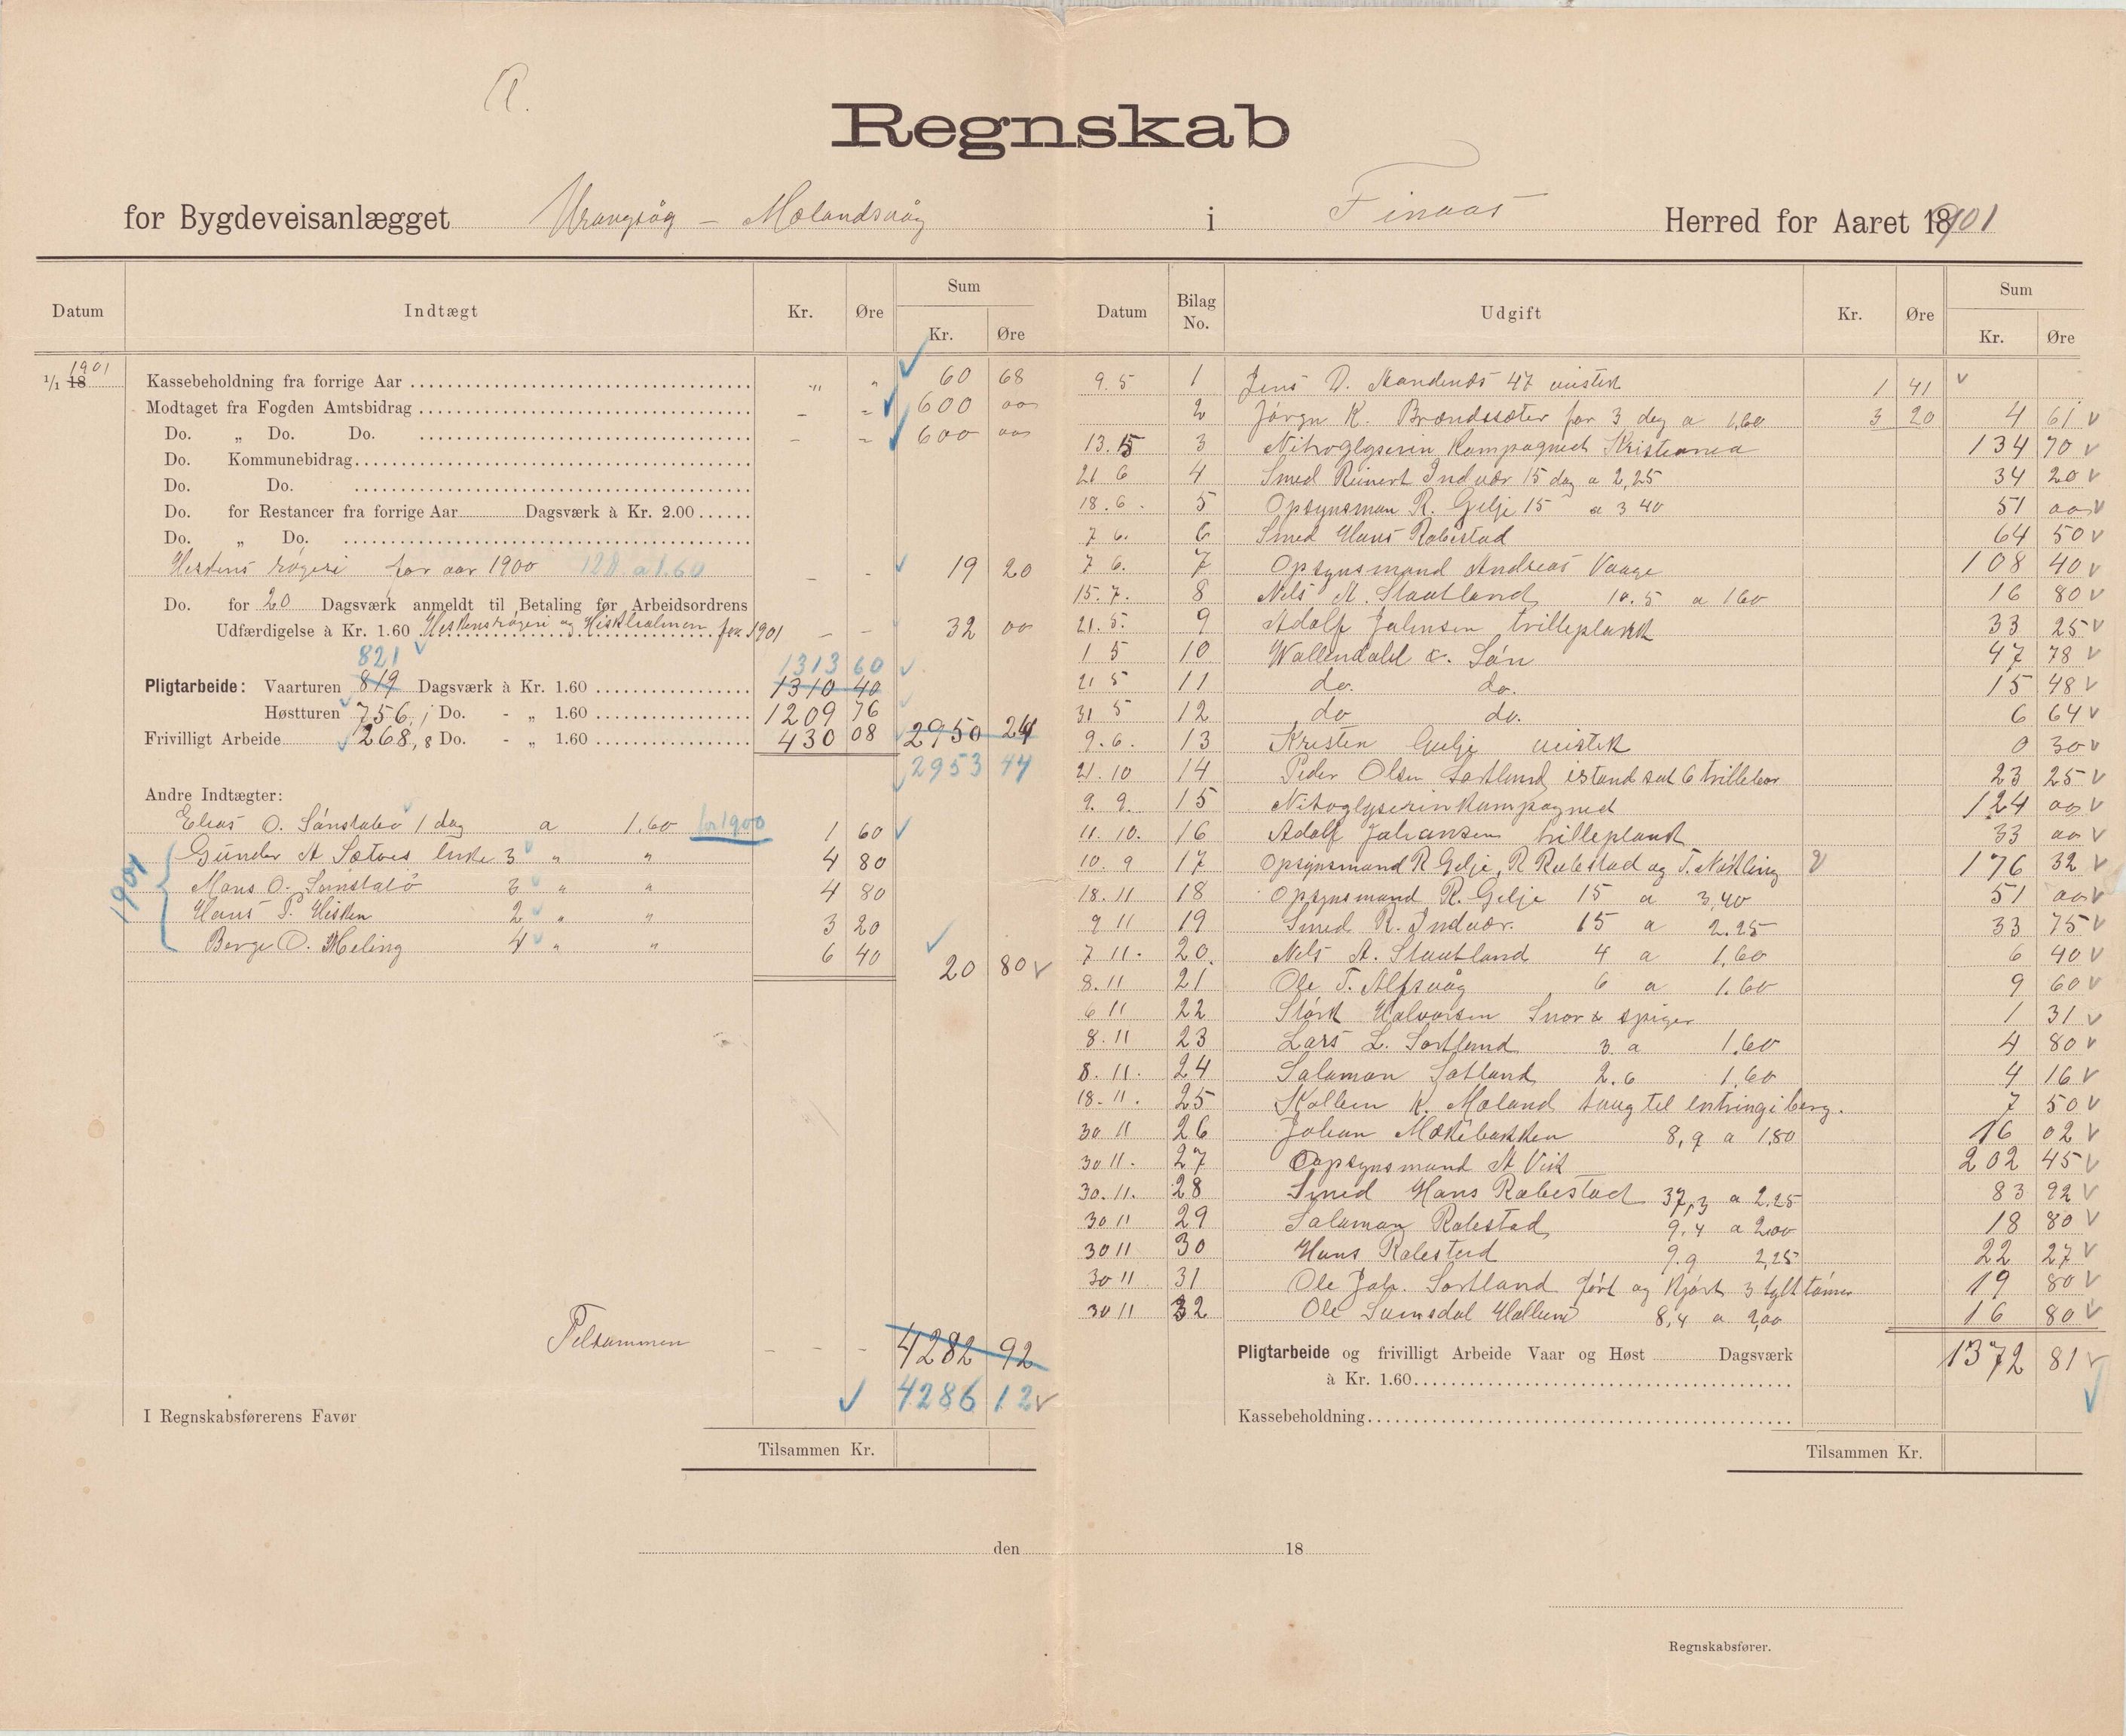 R.
Regnskab
for Bygdeveisanlægget Urangsåg - Mælandsvåg i Finaas Herred for Aaret 18901
Datum Indtægt Kr. Øre Sum Kr. Øre
1901
1/1 18 Kassebeholdning fra forrige Aar „ „ 60 68
Modtaget fra Fogden Amtsbidrag - = 600 00
Do. „ Do. Do. - = 600 00
Do. Kommunebidrag
Do. Do.
Do. for Restancer fra forrige Aar Dagsværk à Kr. 2.00
Do. „ Do.
for aar 1900 12 D a 1.60 - - 19 20
Do. for 20 Dagsværk anmeldt til Betaling før Arbeidsordrens
Udfærdigelse à Kr. 1.60 og for 1901 - - 32 00
821 1313 60
Pligtarbeide: Vaarturen 819 Dagsværk à Kr. 1.60 1310 40
Høstturen 756,1 Do. - „ 1.60 1209 76
Frivilligt Arbeide 268,8 Do. - „ 1.60 430 08 2950 24
2953 44
Andre Indtægter:
Elias O. Sønstabø 1 dag a 1.60 for 1900 1 60
1901
Gunder A Sætres enke 3 „ „ 4 80
Mons O. Sønstabø 3 „ „ 4 80
Hans P. Hisken 2 „ „ 3 20
Berge O. Meling 4 „ „ 6 40 20 80
Tilsammen - - - 4282 92
4286 12
I Regnskabsførerens Favør
Tilsammen Kr.
Datum Bilag No. Udgift Kr. Øre Sum Kr. Øre
9.5 1 Jens D. 47 1 41
2 Jørgn K. Brændsæter for 3 dag a 1,60 3 20 4 61
13.5 3 Nitroglyserin Kompagniet Kristiania 134 70
21 6 4 Smed Reinert Indvær 15 dag a 2,25 34 20
18.6. 5 Opsynsman R. Gilje 15 a 3 40 51 00
7 6. 6 Smed Hans Rabestad 64 50
7 6. 7 Opsynsmand Andreas Vaage 108 40
15.7. 8 Nils A. Stautland 10.5 a 160 16 80
21.5. 9 Adolf Johnsen trilleplank 33 25
1 5 10 Wallendahl & Søn 47 78
21 5 11 do. do. 15 48
31 5 12 do do. 6 64
9.6. 13 Kristen Gilje 0 30
21.10 14 Peder Olsen Sortland istand sat 6 trillebor 23 25
9.9. 15 Nitroglyserin Kompagnied 124 00
11.10. 16 Adolf Johansen trilleplank 33 00
10.9 17 Opsynsmand R Gilje, R Rabestad og T. Nøkling 176 32
18.11 18 Opsynsmand R. Gilje 15 a 3,40 51 00
9 11 19 Smed R. Indvær. 15 a 2.25 33 75
7 11. 20. Nils A. Stautland 4 a 1,60 6 40
8.11 21 Ole T. Alfsvåg 6 a 1.60 9 60
6 11 22 Størk Halvorsen Snor & spiger 1 31
8.11 23 Lars L. Sortland 3 a 1.60 4 80
8.11. 24 Salamon Sortland 2.6 1,60 4 16
18.11. 25 K. Mæland taug til entring i berg. 7 50
30 11 26 Johan Mækebakken 8,9 a 1,80 16 02
30 11. 27 Oopsynsmand A Vik 202 45
30.11. 28 Smed Hans Rabestad 37,3 a 2.25 83 92
30 11 29 Salamon Rabestad 9.4 a 2,00 18 80
30 11 30 Hans Rabestad 9.9 2,25 22 27
30 11 31 Ole Joh. Sortland ført og kjørt 3 tylt tømer 19 80
30 11 32 Ole 8,4 a 2,00 16 80
Pligtarbeide og frivilligt Arbeide Vaar og Høst Dagsværk 1372 81
à Kr. 1.60
Kassebeholdning
Tilsammen Kr.
den 18
Regnskabsfører.